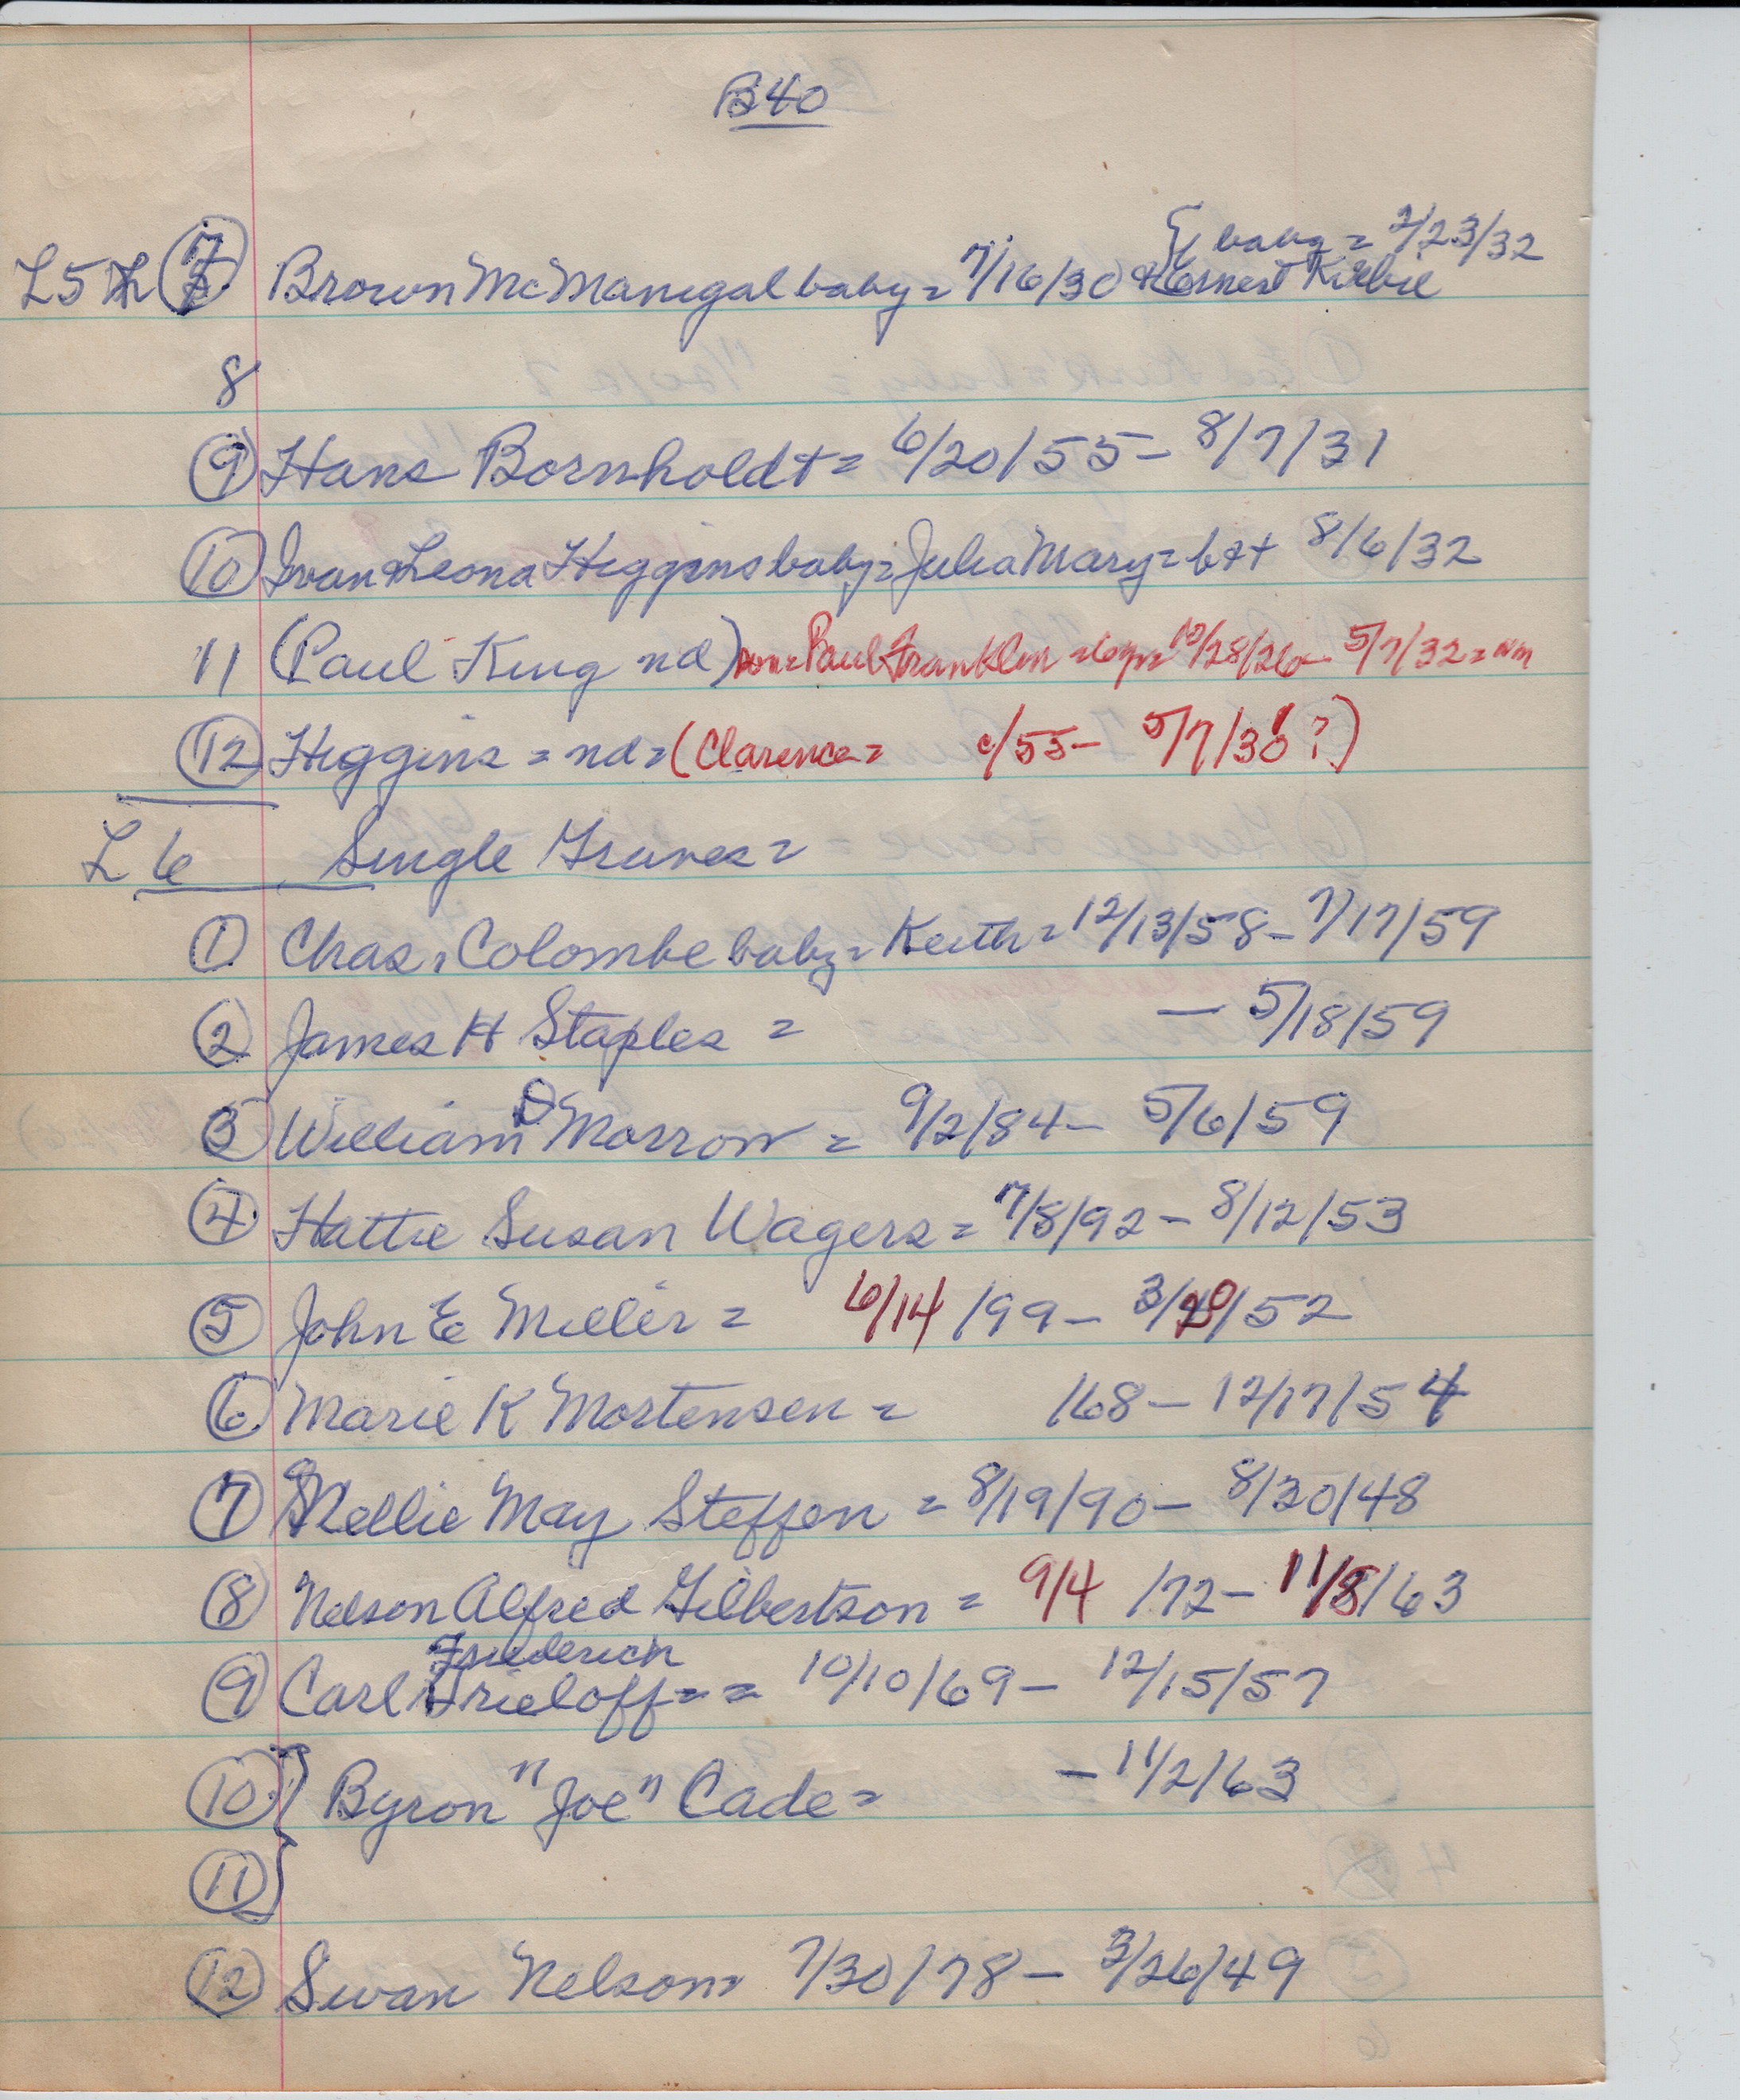 B40
{ baby = 2/23/32
L5 (7) Brown McManigal baby = 7/16/30 & Ernest
8
(9) Hans Bornholdt = 6/20/55 - 8/7/31
(10) Ivan & Leona Higgins baby = Julia Mary = b+t 8/6/32
11 (Paul King nd) son = Paul Franklin = 6yr = 10/28/26 - 5/7/32 =
(12) Higgins = nd = (Clarence = c/55 - 5/7/36 ?)
L6 Single Graves =
(1) Chas. Colombe baby = Keith = 12/13/58 - 7/17/59
(2) James H Staples = - 5/18/59
(3) William D Morrow = 9/2/84 - 5/6/59
(4) Hattie Susan Wagers = 7/8/92 - 8/12/53
(5) John E Miller = 6/14/99 - 3/20/52
(6) Marie K Mortensen = /68 - 12/17/54
(7) Nellie May Steffen = 8/19/90 - 8/30/48
(8) Nelson Alfred Gilbertson = 9/4/72 - 11/8/63
Friederich
(9) Carl Frieloff = = 10/10/69 - 12/15/57
(10) } Byron "Joe" Cade = - 11/2/63
(11) }
(12) Swan Nelson = 7/30/78 - 3/26/49